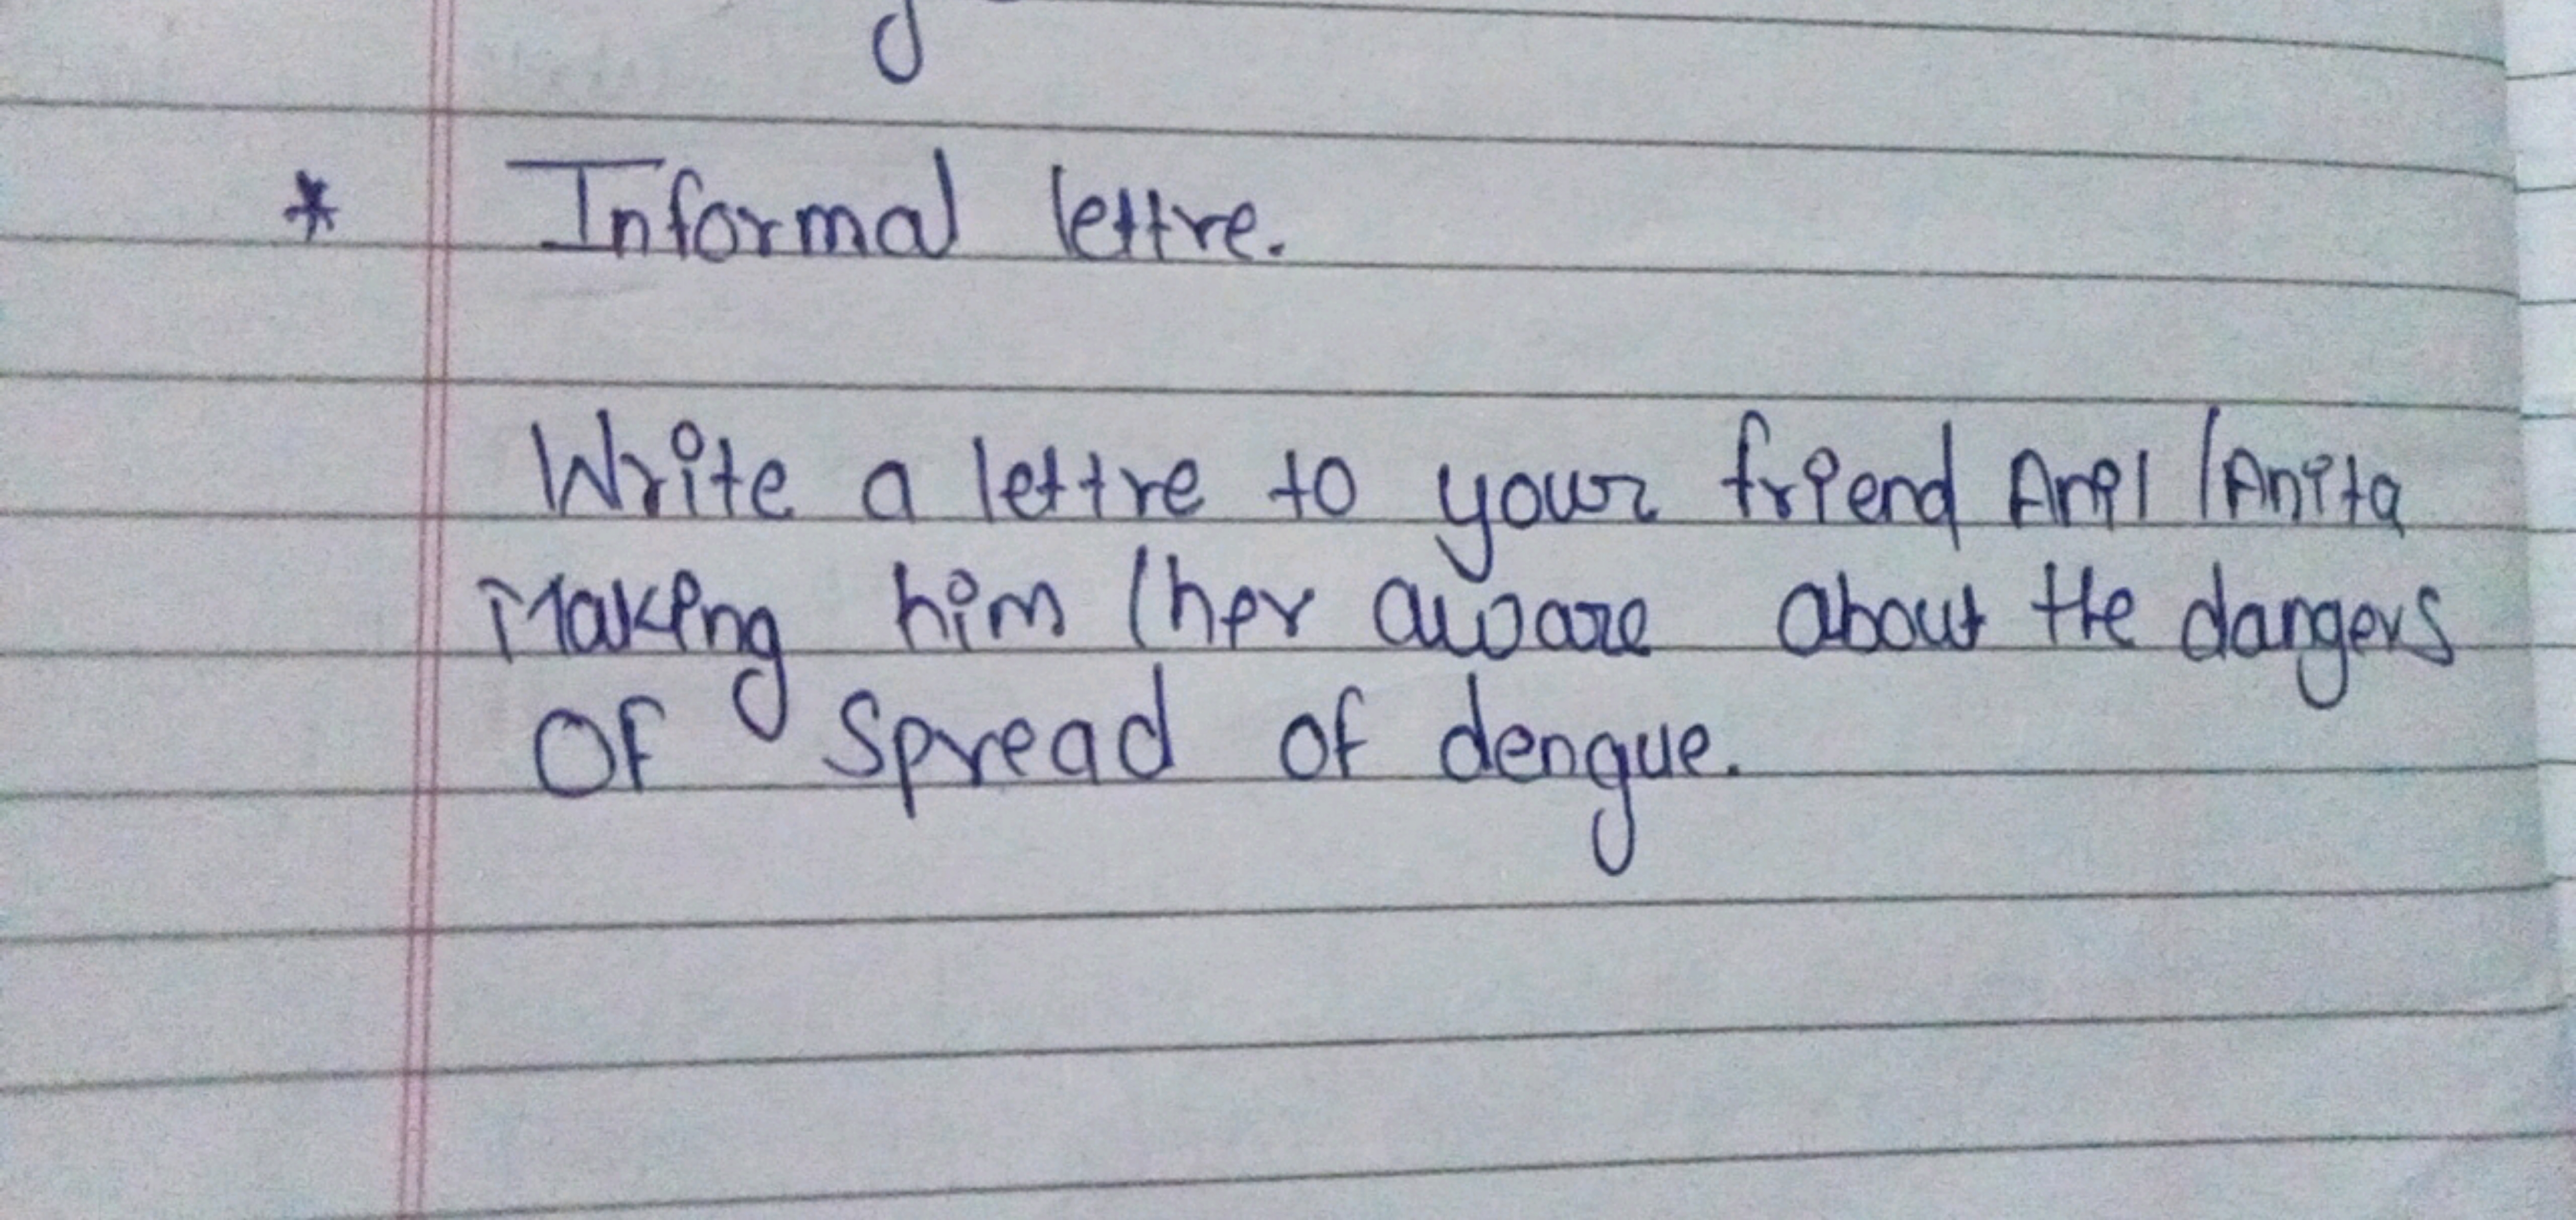 * Informal lettre.
Write a lettre to your friend Anil /Anita
Making him /her aware about the dangers
of spread of dengue.